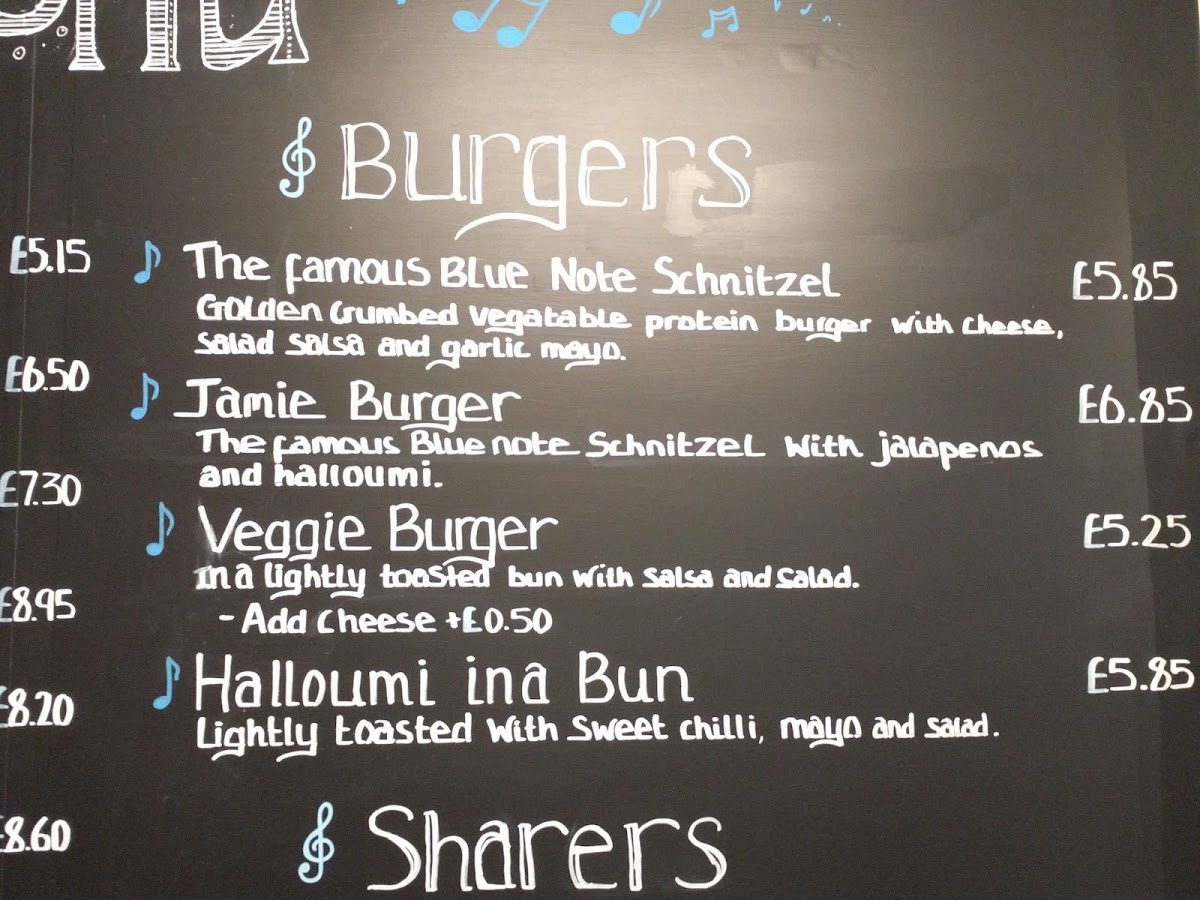 Burgers
£5.15
£6.50
£7.30
£8.95
£8.20
£8.60
The famous Blue Note Schnitzel £5.85
Golden Crumbed Vegatable protein burger with cheese,
salad salsa and garlic mayo.
Jamie Burger £6.85
The famous Blue note Schnitzel with jalapenos
and halloumi.
Veggie Burger £5.25
in a lightly toasted bun with salsa and salad.
- Add cheese +£0.50
Halloumi in a Bun £5.85
Lightly toasted with sweet chilli, mayo and salad.
Sharers